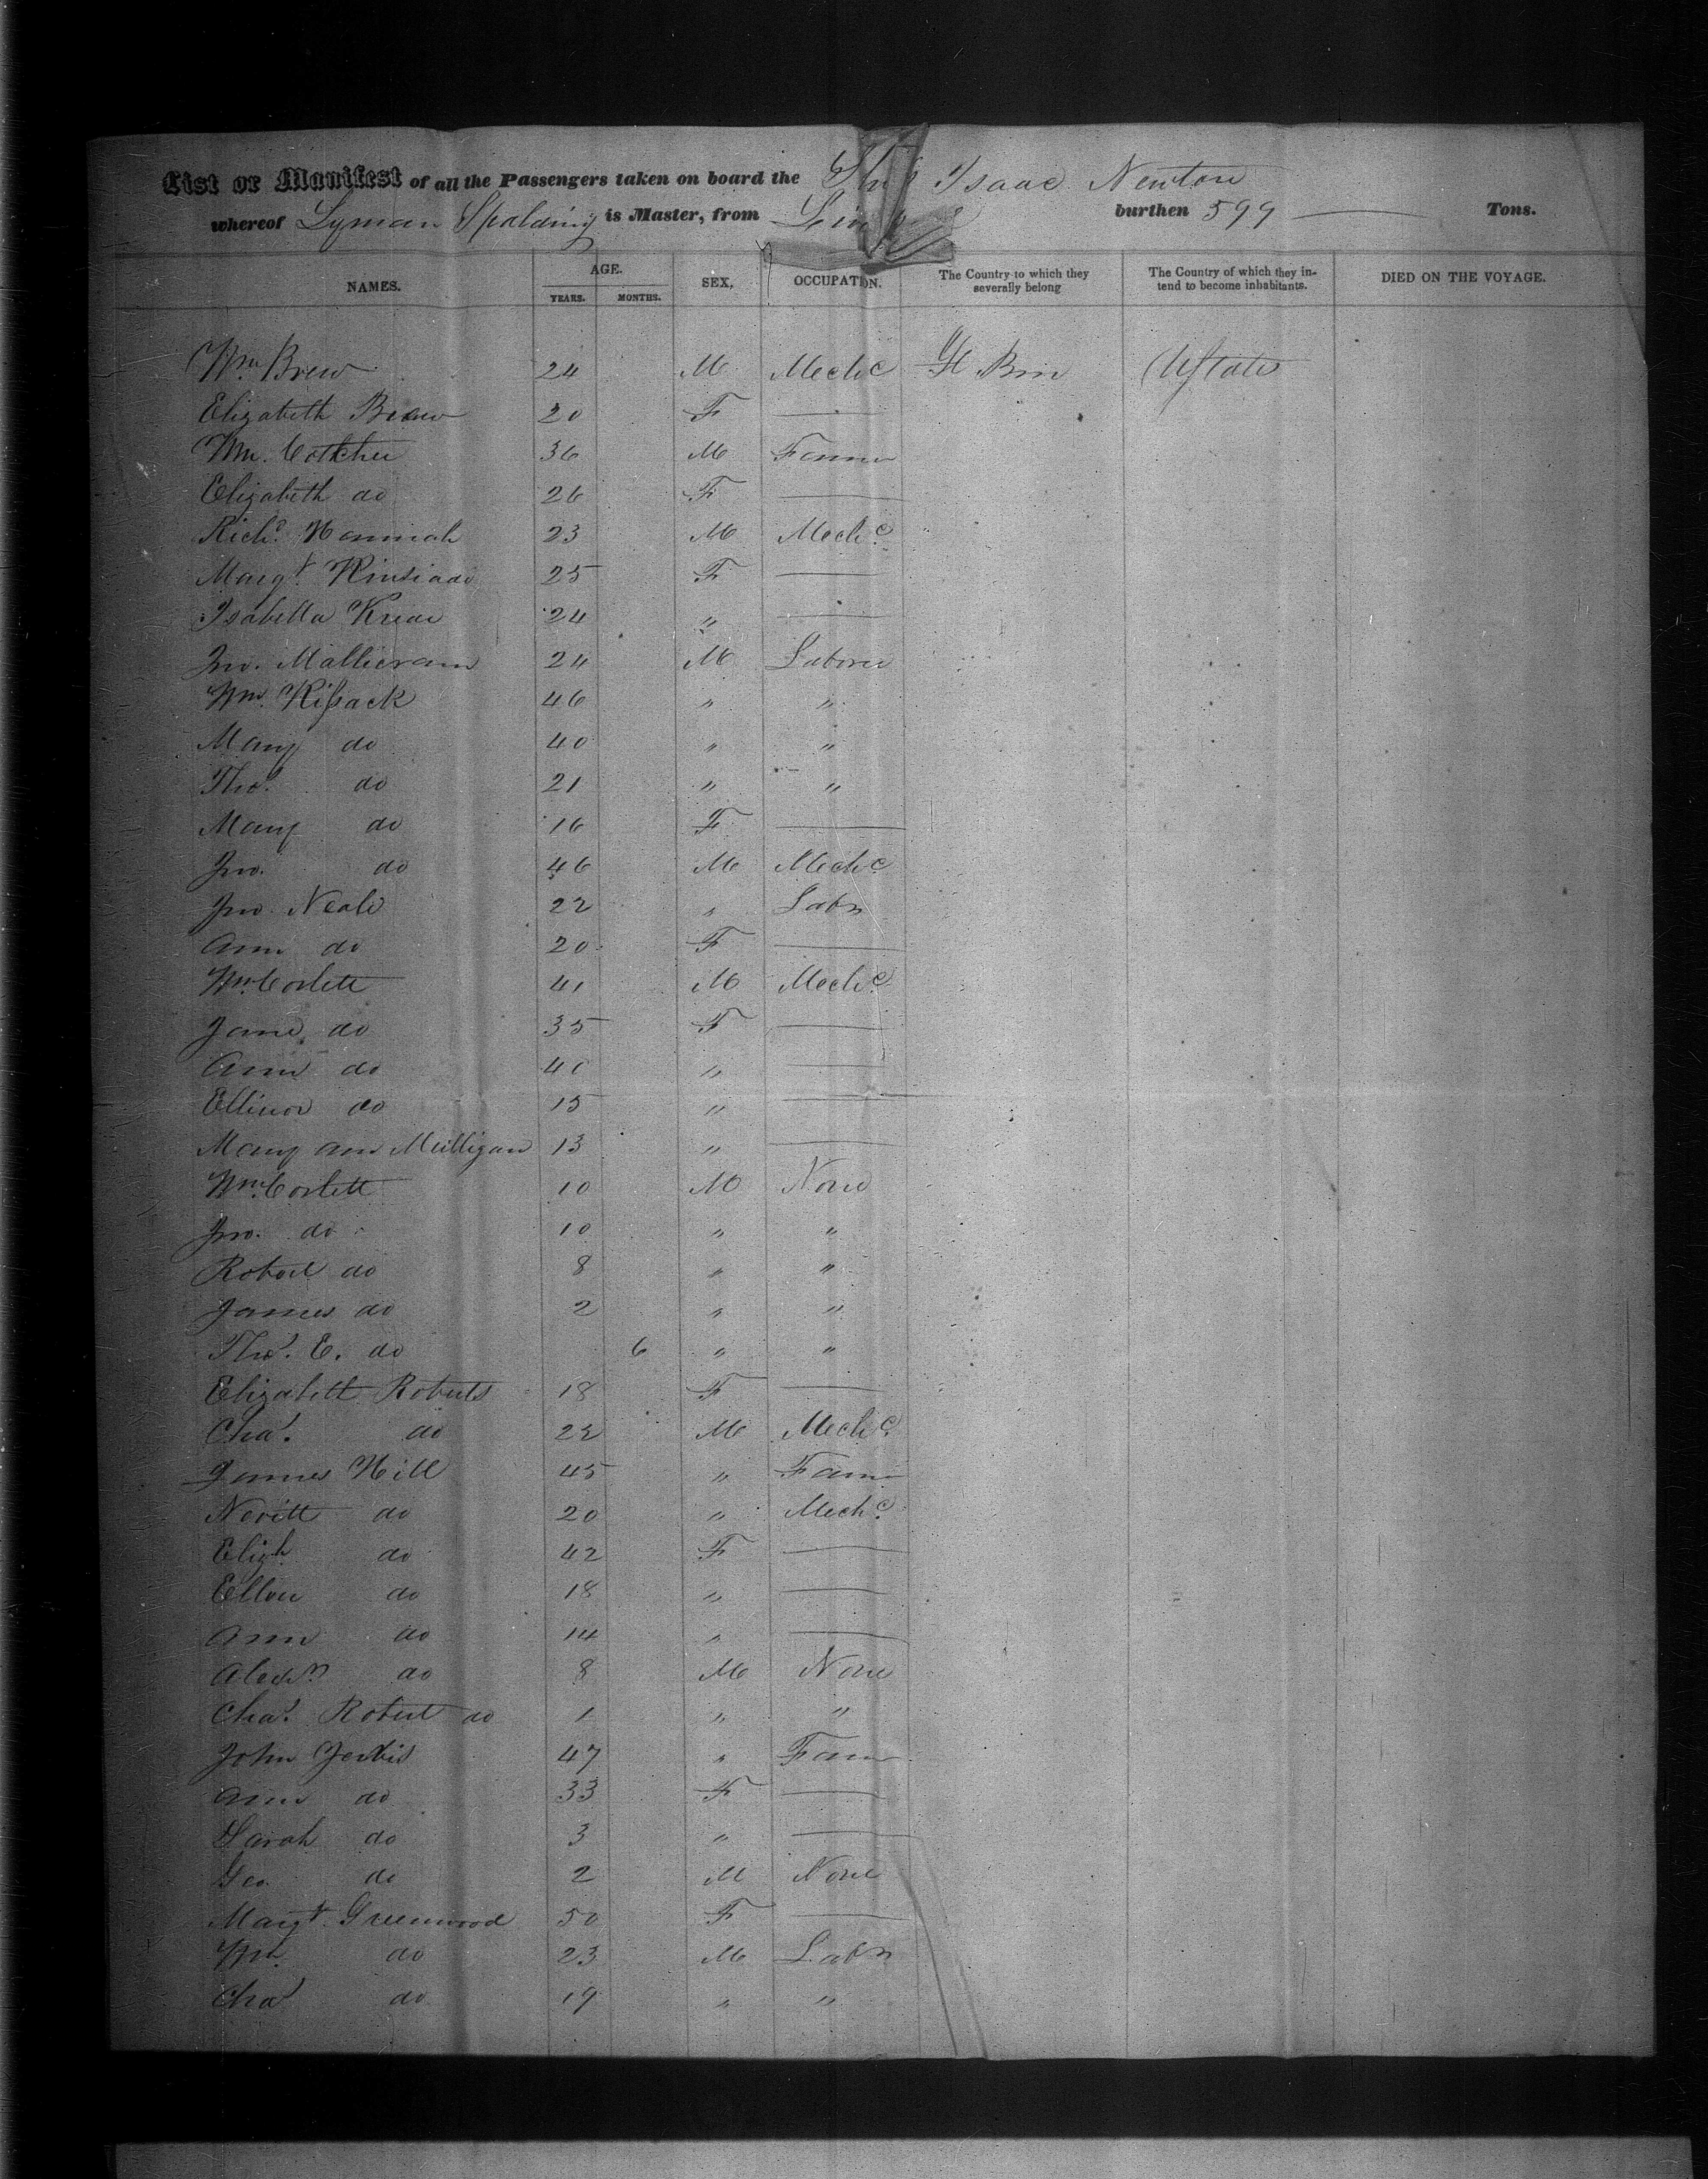 List or Manifest of all the Passengers taken on board the Ship Isaac Newton
whereof Lyman Spalding is Master, from burthen 599 Tons.
NAMES. AGE. YEARS. MONTHS. SEX. OCCUPATION. The Country to which they severally belong The Country of which they intend to become inhabitants. DIED ON THE VOYAGE.
Wm Brew 24 M Mechc Gt Brn UStates
Elizabeth Brew 20 F
Wm. 36 M Farmer
Elizabeth do 26 F
Richd. Hannah 23 M Mechc
Margt. 25 F
Isabella 24 "
Jno. 24 M Laborer
Wm. Kissack 46 " "
Mary do 40 " "
Thos. do 21 " "
Mary do 16 F
Jno. do 46 M Mechc
Jno. Neale 22 " Labr
Ann do 20 F
Wm. Corlett 41 M Mechc
Jane do 35 F
Ann do 40 "
Ellinor do 15 "
Mary Ann Mulligan 13 "
Wm. Corlett 10 M None
Jno. do 10 " "
Robert do 8 " "
James do 2 " "
Thos. E. do 6 " "
Elizabeth Roberts 18 F
Chas. do 22 M Mechc
James Hill 45 " Farmr
Nevitt do 20 " Mechc
Elizh do 42 F
Ellen do 18 "
Ann do 14 "
Alexr do 8 M None
Chas. Robert do 1 " "
John 47 " Farmr
Ann do 33 F
Sarah do 3 "
Geo. do 2 M None
Margt. Greenwood 50 F
Wm. do 23 M Labr
Chas do 19 " "